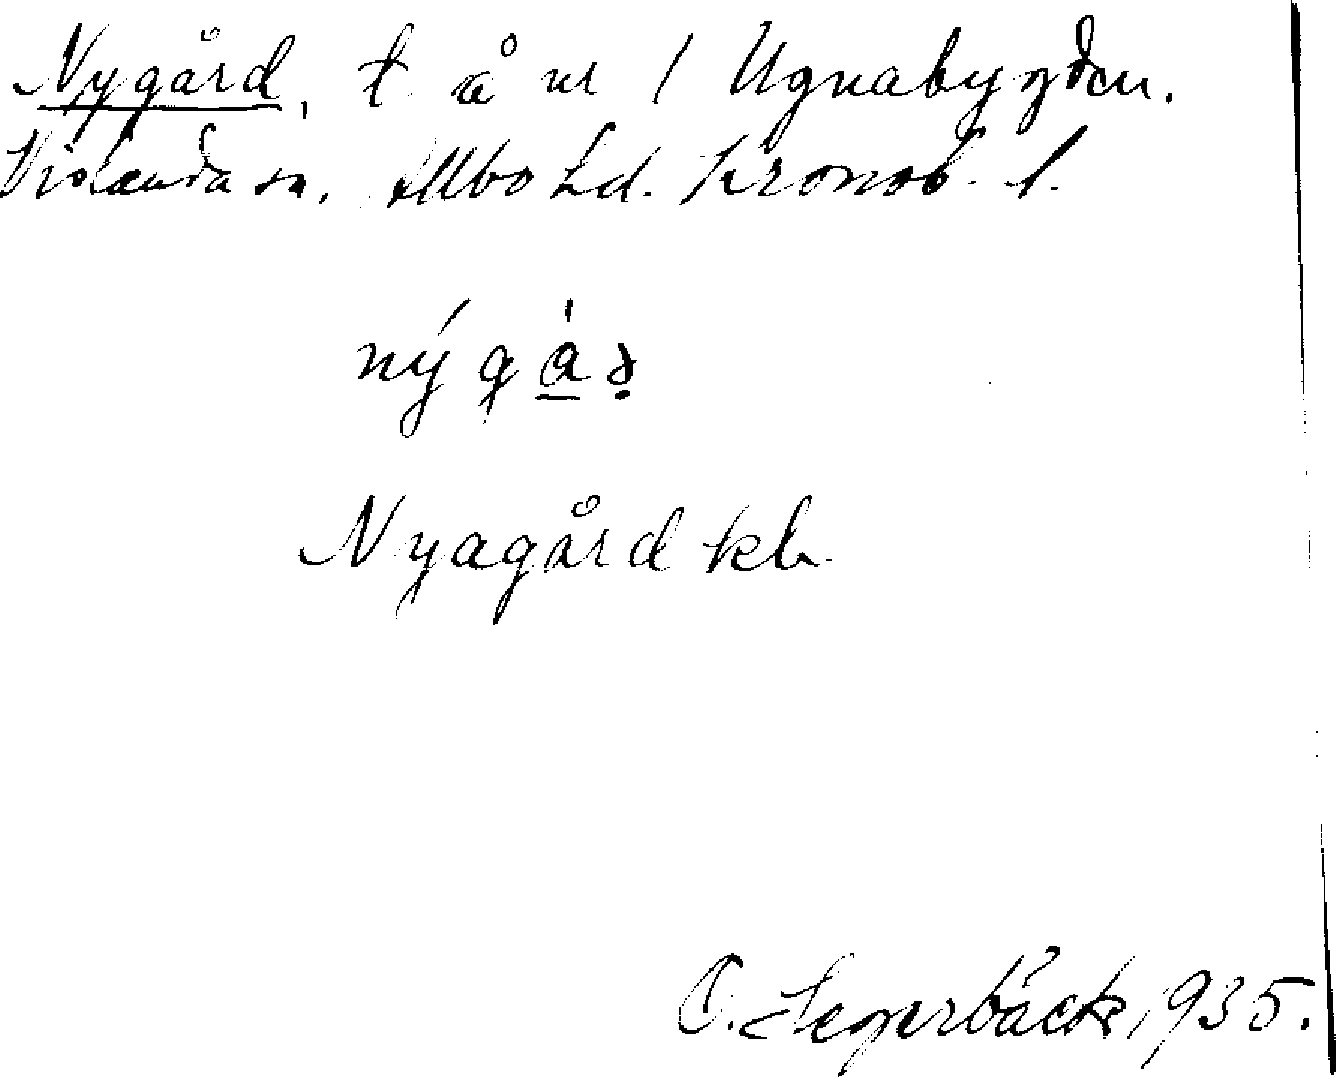 Nygård, t å nr 1 Ugnabygden.
Vislanda sn. Allbo hd. Kronob. l.
nýgå̱ḍ
Nyagård kb.
O. Segerbäck 1935.